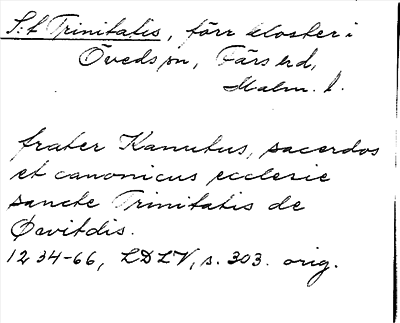 S:t Trinitatis, förr kloster i
Övedspn, Färs hd,
Malm. l.
frater Kanutus, sacerdos
et canonicus ecclesie
sancte Trinitatis de
Øavitdis.
1234-66, LDLV, s. 303. orig.